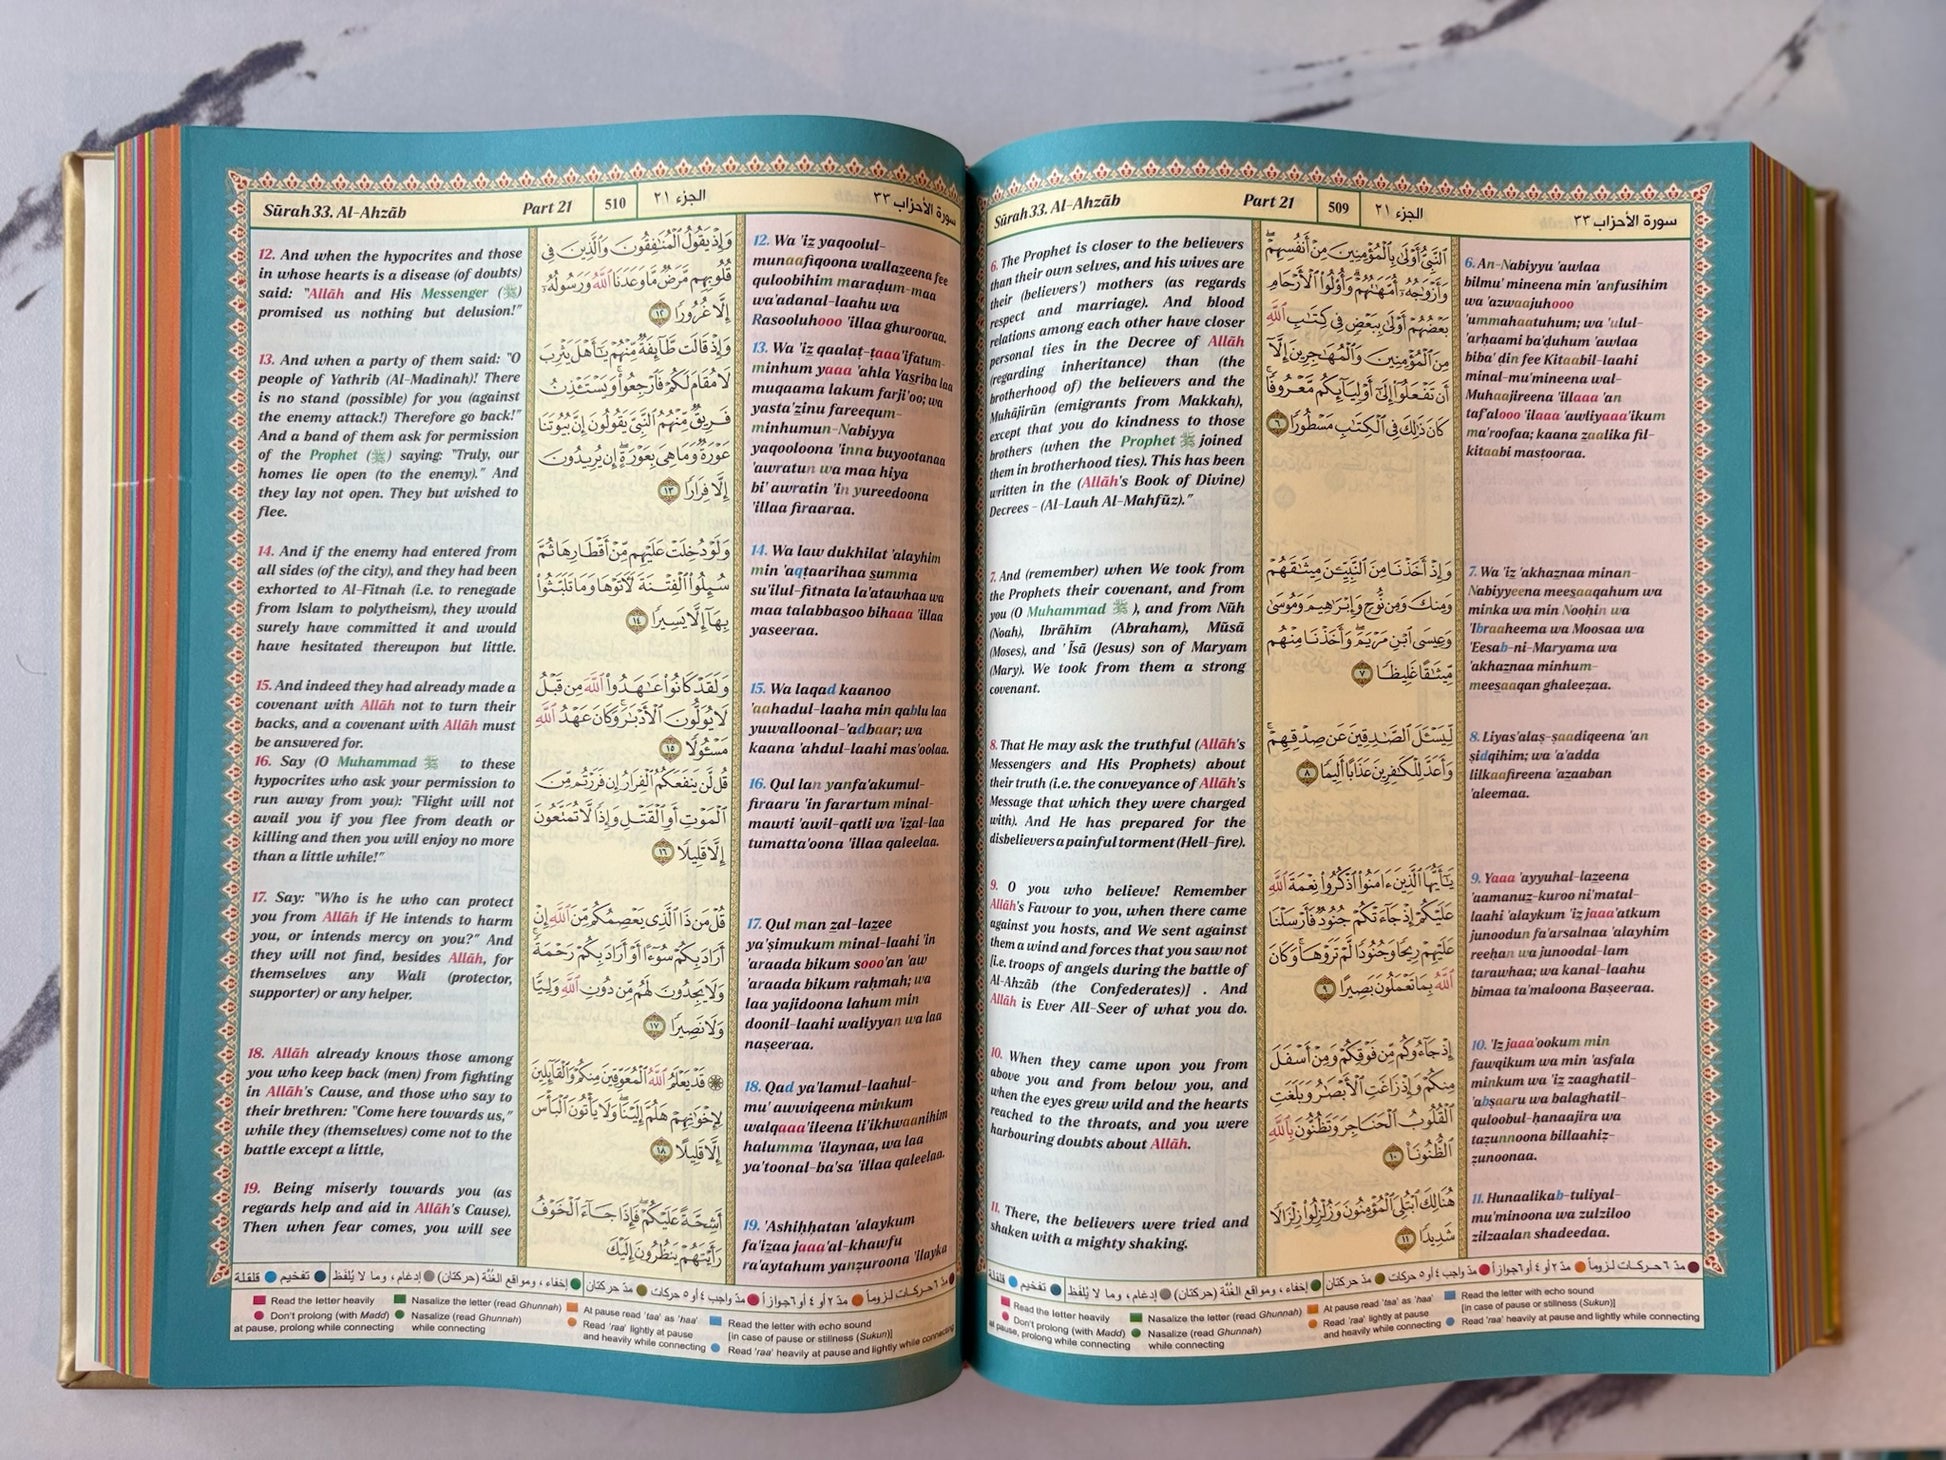 Sūrah 33. Al-Ahzāb
Part 21
509
الجزء ٢١
سورة الأحزاب ٣٣
6. The Prophet is closer to the believers
than their own selves, and his wives are
their (believers') mothers (as regards
respect and marriage). And blood
relations among each other have closer
personal ties in the Decree of Allāh
(regarding inheritance) than (the
brotherhood of) the believers and the
Muhājirūn (emigrants from Makkah),
except that you do kindness to those
brothers (when the Prophet ﷺ joined
them in brotherhood ties). This has been
written in the (Allāh's Book of Divine)
Decrees - (Al-Lauh Al-Mahfūz)."
7. And (remember) when We took from
the Prophets their covenant, and from
you (O Muhammad ﷺ ), and from Nūh
(Noah), Ibrāhīm (Abraham), Mūsā
(Moses), and 'Īsā (Jesus) son of Maryam
(Mary). We took from them a strong
covenant.
8. That He may ask the truthful (Allāh's
Messengers and His Prophets) about
their truth (i.e. the conveyance of Allāh's
Message that which they were charged
with). And He has prepared for the
disbelievers a painful torment (Hell-fire).
9. O you who believe! Remember
Allāh's Favour to you, when there came
against you hosts, and We sent against
them a wind and forces that you saw not
[i.e. troops of angels during the battle of
Al-Ahzāb (the Confederates)] . And
Allāh is Ever All-Seer of what you do.
10. When they came upon you from
above you and from below you, and
when the eyes grew wild and the hearts
reached to the throats, and you were
harbouring doubts about Allāh.
11. There, the believers were tried and
shaken with a mighty shaking.
ٱلنَّبِىُّ أَوْلَىٰ بِٱلْمُؤْمِنِينَ مِنْ أَنفُسِهِمْ ۖ
وَأَزْوَٰجُهُۥٓ أُمَّهَٰتُهُمْ ۗ وَأُو۟لُوا۟ ٱلْأَرْحَامِ
بَعْضُهُمْ أَوْلَىٰ بِبَعْضٍ فِى كِتَٰبِ ٱللَّهِ
مِنَ ٱلْمُؤْمِنِينَ وَٱلْمُهَٰجِرِينَ إِلَّآ
أَن تَفْعَلُوٓا۟ إِلَىٰٓ أَوْلِيَآئِكُم مَّعْرُوفًا ۚ
كَانَ ذَٰلِكَ فِى ٱلْكِتَٰبِ مَسْطُورًا ٦
وَإِذْ أَخَذْنَا مِنَ ٱلنَّبِيِّـۧنَ مِيثَٰقَهُمْ
وَمِنكَ وَمِن نُّوحٍ وَإِبْرَٰهِيمَ وَمُوسَىٰ
وَعِيسَى ٱبْنِ مَرْيَمَ ۖ وَأَخَذْنَا مِنْهُم
مِّيثَٰقًا غَلِيظًا ٧
لِّيَسْـَٔلَ ٱلصَّٰدِقِينَ عَن صِدْقِهِمْ ۚ
وَأَعَدَّ لِلْكَٰفِرِينَ عَذَابًا أَلِيمًا ٨
يَٰٓأَيُّهَا ٱلَّذِينَ ءَامَنُوا۟ ٱذْكُرُوا۟ نِعْمَةَ ٱللَّهِ
عَلَيْكُمْ إِذْ جَآءَتْكُمْ جُنُودٌ فَأَرْسَلْنَا
عَلَيْهِمْ رِيحًا وَجُنُودًا لَّمْ تَرَوْهَا ۚ وَكَانَ
ٱللَّهُ بِمَا تَعْمَلُونَ بَصِيرًا ٩
إِذْ جَآءُوكُم مِّن فَوْقِكُمْ وَمِنْ أَسْفَلَ
مِنكُمْ وَإِذْ زَاغَتِ ٱلْأَبْصَٰرُ وَبَلَغَتِ
ٱلْقُلُوبُ ٱلْحَنَاجِرَ وَتَظُنُّونَ بِٱللَّهِ
ٱلظُّنُونَا۠ ١٠
هُنَالِكَ ٱبْتُلِىَ ٱلْمُؤْمِنُونَ وَزُلْزِلُوا۟ زِلْزَالًا
شَدِيدًا ١١
6. An-Nabiyyu 'awlaa
bilmu' mineena min 'anfusihim
wa 'azwaajuhooo
'ummahaatuhum; wa 'ulul-
'arḥaami ba'ḍuhum 'awlaa
biba' ḍin fee Kitaabil-laahi
minal-mu'mineena wal-
Muhaajireena 'illaaa 'an
taf'alooo 'ilaaa 'awliyaaa'ikum
ma'roofaa; kaana zaalika fil-
kitaabi mastooraa.
7. Wa 'iz 'akhaznaa minan-
Nabiyyeena meesaaqahum wa
minka wa min Nooḥin wa
'Ibraaheema wa Moosaa wa
'Eesab-ni-Maryama wa
'akhaznaa minhum-
meesaaqan ghaleezaa.
8. Liyas'alaṣ-ṣaadiqeena 'an
ṣidqihim; wa 'a'adda
lilkaafireena 'azaaban
'aleemaa.
9. Yaaa 'ayyuhal-lazeena
'aamanuz-kuroo ni'matal-
laahi 'alaykum 'iz jaaa'atkum
junoodun fa'arsalnaa 'alayhim
reeḥan wa junoodal-lam
tarawhaa; wa kanal-laahu
bimaa ta'maloona Baṣeeraa.
10. 'Iz jaaa'ookum min
fawqikum wa min 'asfala
minkum wa 'iz zaaghatil-
'abṣaaru wa balaghatil-
quloobul-ḥanaajira wa
taẓunnoona billaahiẓ-
ẓunoonaa.
11. Hunaalikab-tuliyal-
mu'minoona wa zulziloo
zilzaalan shadeedaa.
مدّ ٦ حركـات لـزوماً مدّ ٢ أو ٤ أو ٦ جوازاً مدّ واجب ٤ أو ٥ حركات مدّ حركتان إخفاء ، ومواقع الغُنَّة (حركتان) إدغام ، وما لا يُلفَظ تفخيم قلقلة
Read the letter heavily
Don't prolong (with Madd)
at pause, prolong while connecting
Nasalize the letter (read Ghunnah)
Nasalize (read Ghunnah)
while connecting
At pause read 'taa' as 'haa'
Read 'raa' lightly at pause
and heavily while connecting
Read the letter with echo sound
[in case of pause or stillness (Sukun)]
Read 'raa' heavily at pause and lightly while connecting
Sūrah 33. Al-Ahzāb
Part 21
510
الجزء ٢١
سورة الأحزاب ٣٣
12. And when the hypocrites and those
in whose hearts is a disease (of doubts)
said: "Allāh and His Messenger (ﷺ)
promised us nothing but delusion!"
13. And when a party of them said: "O
people of Yathrib (Al-Madinah)! There
is no stand (possible) for you (against
the enemy attack!) Therefore go back!"
And a band of them ask for permission
of the Prophet (ﷺ) saying: "Truly, our
homes lie open (to the enemy)." And
they lay not open. They but wished to
flee.
14. And if the enemy had entered from
all sides (of the city), and they had been
exhorted to Al-Fitnah (i.e. to renegade
from Islam to polytheism), they would
surely have committed it and would
have hesitated thereupon but little.
15. And indeed they had already made a
covenant with Allāh not to turn their
backs, and a covenant with Allāh must
be answered for.
16. Say (O Muhammad ﷺ to these
hypocrites who ask your permission to
run away from you): "Flight will not
avail you if you flee from death or
killing and then you will enjoy no more
than a little while!"
17. Say: "Who is he who can protect
you from Allāh if He intends to harm
you, or intends mercy on you?" And
they will not find, besides Allāh, for
themselves any Walī (protector,
supporter) or any helper.
18. Allāh already knows those among
you who keep back (men) from fighting
in Allāh's Cause, and those who say to
their brethren: "Come here towards us,"
while they (themselves) come not to the
battle except a little,
19. Being miserly towards you (as
regards help and aid in Allāh's Cause).
Then when fear comes, you will see
وَإِذْ يَقُولُ ٱلْمُنَٰفِقُونَ وَٱلَّذِينَ فِى
قُلُوبِهِم مَّرَضٌ مَّا وَعَدَنَا ٱللَّهُ وَرَسُولُهُۥٓ
إِلَّا غُرُورًا ١٢
وَإِذْ قَالَت طَّآئِفَةٌ مِّنْهُمْ يَٰٓأَهْلَ يَثْرِبَ
لَا مُقَامَ لَكُمْ فَٱرْجِعُوا۟ ۚ وَيَسْتَـْٔذِنُ
فَرِيقٌ مِّنْهُمُ ٱلنَّبِىَّ يَقُولُونَ إِنَّ بُيُوتَنَا
عَوْرَةٌ وَمَا هِىَ بِعَوْرَةٍ ۖ إِن يُرِيدُونَ
إِلَّا فِرَارًا ١٣
وَلَوْ دُخِلَتْ عَلَيْهِم مِّنْ أَقْطَارِهَا ثُمَّ
سُئِلُوا۟ ٱلْفِتْنَةَ لَـَٔاتَوْهَا وَمَا تَلَبَّثُوا۟
بِهَآ إِلَّا يَسِيرًا ١٤
وَلَقَدْ كَانُوا۟ عَٰهَدُوا۟ ٱللَّهَ مِن قَبْلُ
لَا يُوَلُّونَ ٱلْأَدْبَٰرَ ۚ وَكَانَ عَهْدُ ٱللَّهِ
مَسْـُٔولًا ١٥
قُل لَّن يَنفَعَكُمُ ٱلْفِرَارُ إِن فَرَرْتُم مِّنَ
ٱلْمَوْتِ أَوِ ٱلْقَتْلِ وَإِذًا لَّا تُمَتَّعُونَ
إِلَّا قَلِيلًا ١٦
قُلْ مَن ذَا ٱلَّذِى يَعْصِمُكُم مِّنَ ٱللَّهِ إِنْ
أَرَادَ بِكُمْ سُوٓءًا أَوْ أَرَادَ بِكُمْ رَحْمَةً ۚ
وَلَا يَجِدُونَ لَهُم مِّن دُونِ ٱللَّهِ وَلِيًّا
وَلَا نَصِيرًا ١٧
۞ قَدْ يَعْلَمُ ٱللَّهُ ٱلْمُعَوِّقِينَ مِنكُمْ وَٱلْقَآئِلِينَ
لِإِخْوَٰنِهِمْ هَلُمَّ إِلَيْنَا ۖ وَلَا يَأْتُونَ ٱلْبَأْسَ
إِلَّا قَلِيلًا ١٨
أَشِحَّةً عَلَيْكُمْ ۖ فَإِذَا جَآءَ ٱلْخَوْفُ
رَأَيْتَهُمْ يَنظُرُونَ إِلَيْكَ
12. Wa 'iz yaqoolul-
munaafiqoona wallazeena fee
quloobihim maraḍum-maa
wa'adanal-laahu wa
Rasooluhooo 'illaa ghurooraa.
13. Wa 'iz qaalaṭ-ṭaaa'ifatum-
minhum yaaa 'ahla Yasriba laa
muqaama lakum farji'oo; wa
yasta'zinu fareequm-
minhumun-Nabiyya
yaqooloona 'inna buyootanaa
'awratun wa maa hiya
bi' awratin 'in yureedoona
'illaa firaaraa.
14. Wa law dukhilat 'alayhim
min 'aqṭaarihaa summa
su'ilul-fitnata la'atawhaa wa
maa talabbasoo bihaaa 'illaa
yaseeraa.
15. Wa laqad kaanoo
'aahadul-laaha min qablu laa
yuwalloonal-'adbaar; wa
kaana 'ahdul-laahi mas'oolaa.
16. Qul lan yanfa'akumul-
firaaru 'in farartum minal-
mawti 'awil-qatli wa 'izal-laa
tumatta'oona 'illaa qaleelaa.
17. Qul man zal-lazee
ya'ṣimukum minal-laahi 'in
'araada bikum sooo'an 'aw
'araada bikum raḥmah; wa
laa yajidoona lahum min
doonil-laahi waliyyan wa laa
naṣeeraa.
18. Qad ya'lamul-laahul-
mu' awwiqeena minkum
walqaaa'ileena li'ikhwaanihim
halumma 'ilaynaa, wa laa
ya'toonal-ba'sa 'illaa qaleelaa.
19. 'Ashiḥḥatan 'alaykum
fa'izaa jaaa'al-khawfu
ra'aytahum yanẓuroona 'ilayka
مدّ ٦ حركـات لـزوماً مدّ ٢ أو ٤ أو ٦ جوازاً مدّ واجب ٤ أو ٥ حركات مدّ حركتان إخفاء ، ومواقع الغُنَّة (حركتان) إدغام ، وما لا يُلفَظ تفخيم قلقلة
Read the letter heavily
Don't prolong (with Madd)
at pause, prolong while connecting
Nasalize the letter (read Ghunnah)
Nasalize (read Ghunnah)
while connecting
At pause read 'taa' as 'haa'
Read 'raa' lightly at pause
and heavily while connecting
Read the letter with echo sound
[in case of pause or stillness (Sukun)]
Read 'raa' heavily at pause and lightly while connecting